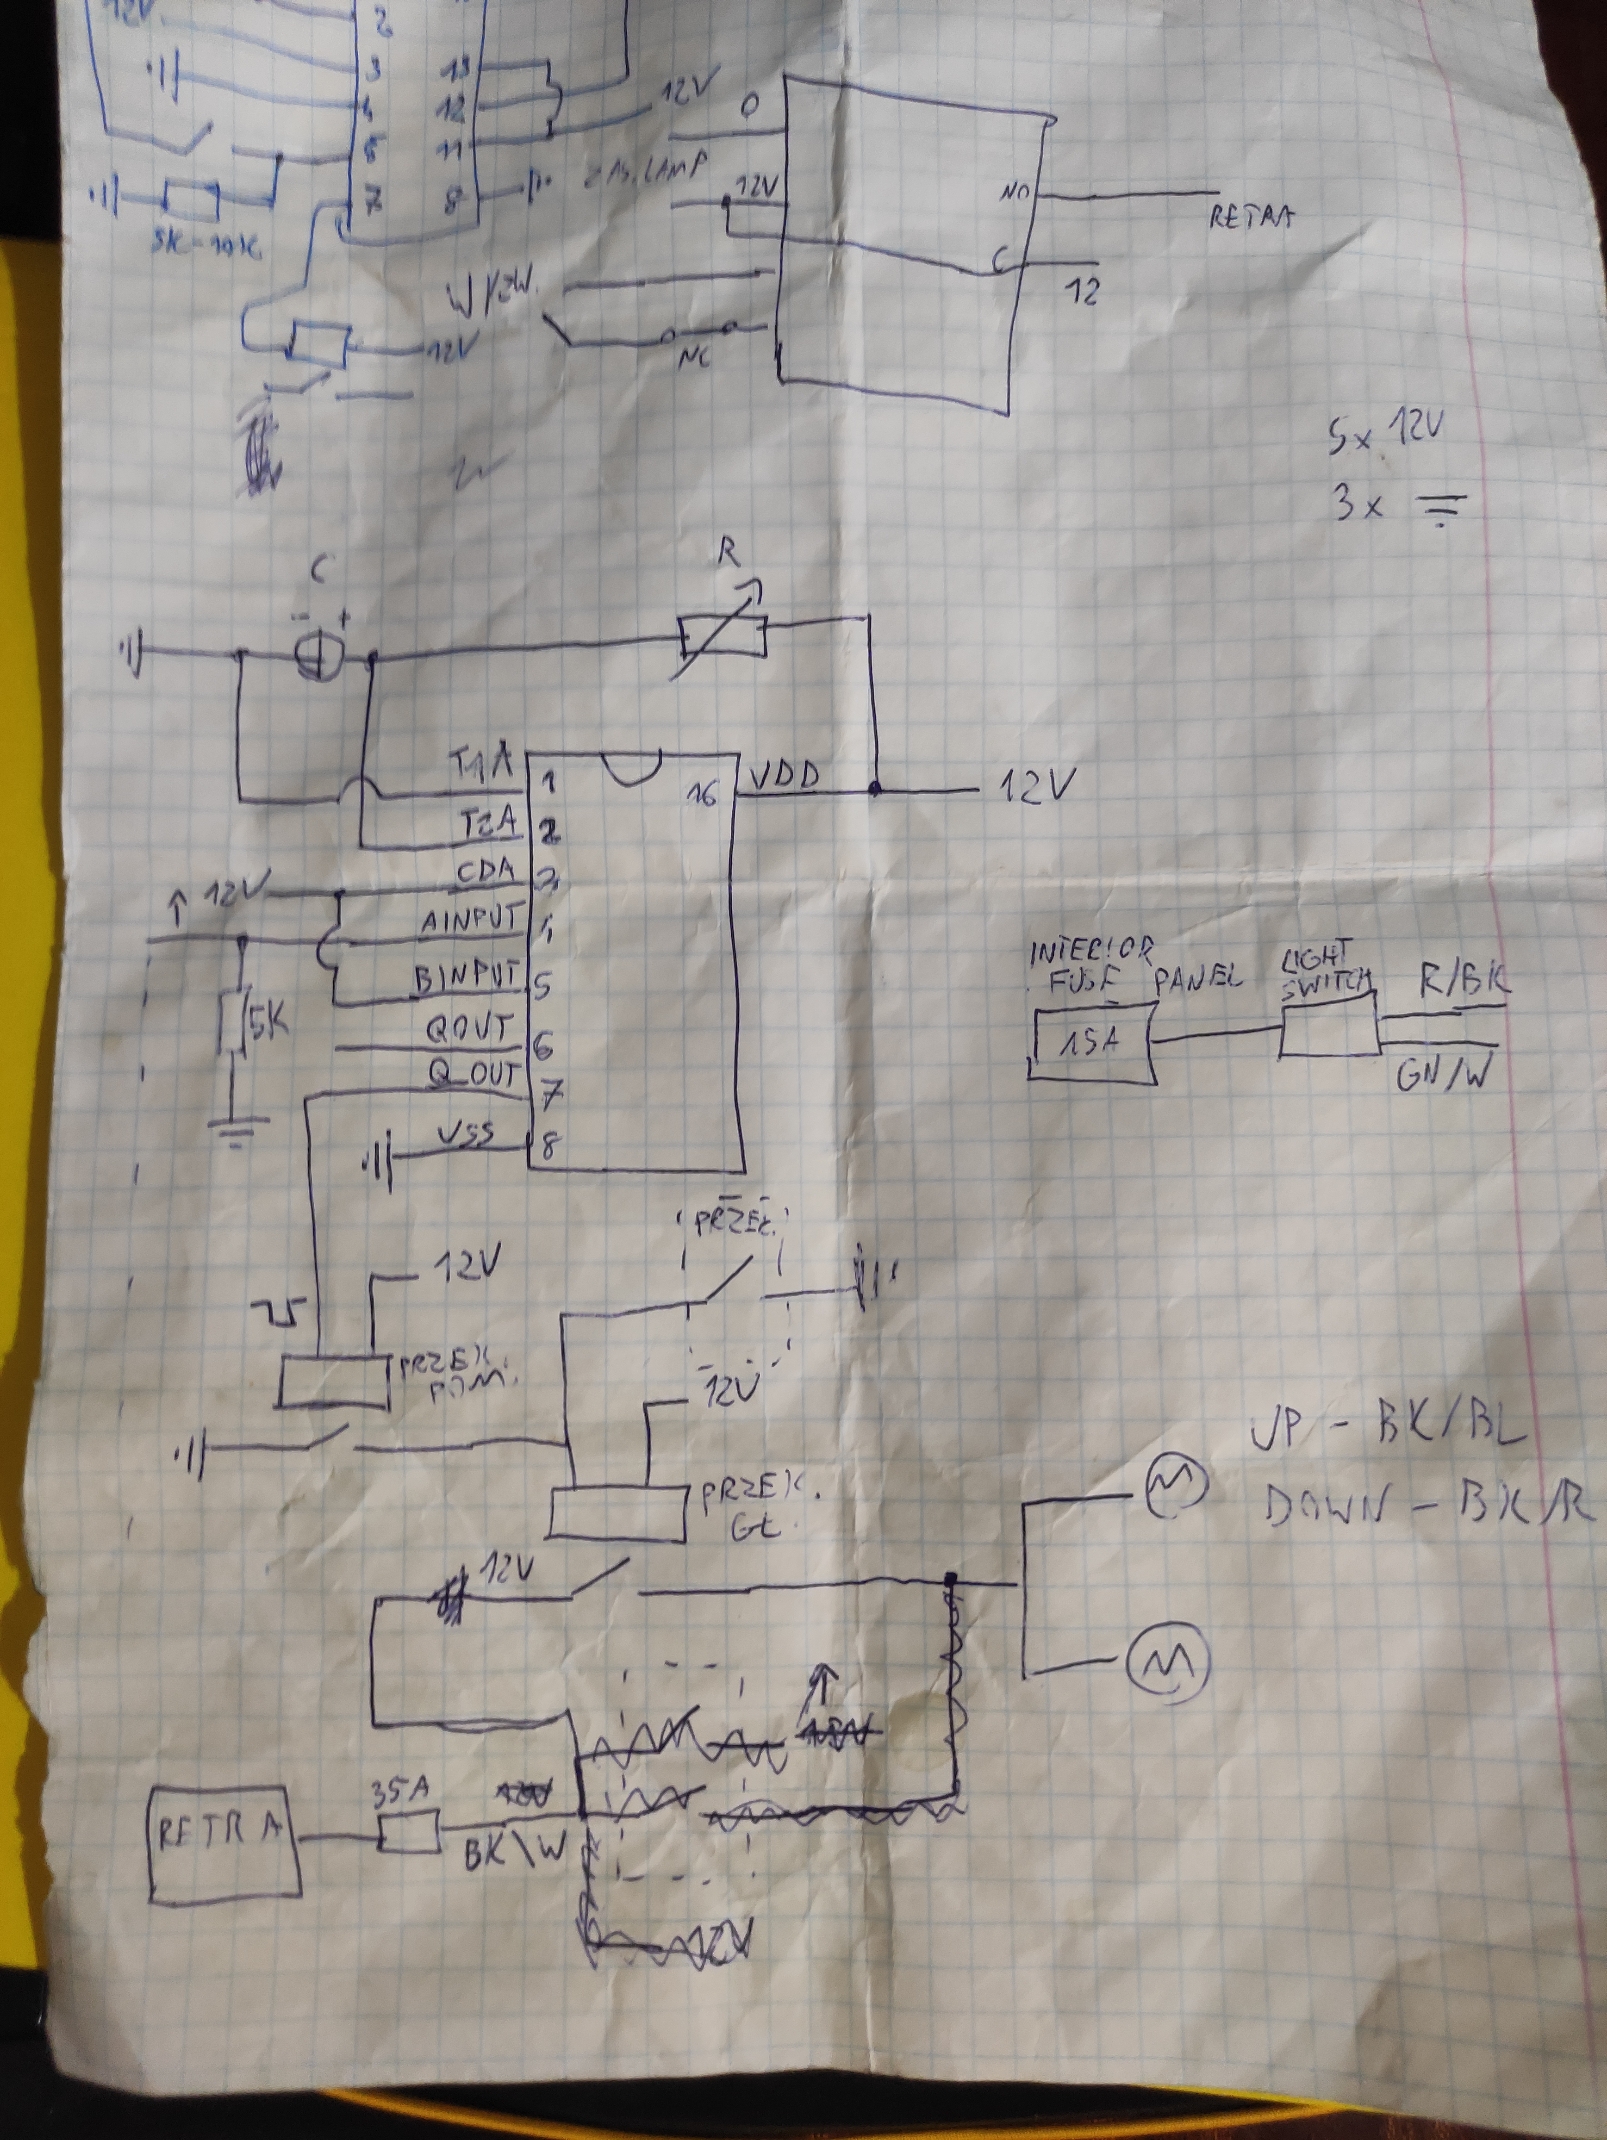 12V
2
3
13
12V
O
4
12
6
11
ZAS. LAMP
12V
NO
7
8
RETRA
5K-10K
W/ZW.
C
12
12V
NC
5x 12V
3x
C
R
- +
T1A
1
16
VDD
12V
T2A
2
12V
CDA
3
AINPUT
4
INTERIOR
FUSE PANEL
LIGHT
SWITCH
R/BK
BINPUT
5
5K
15A
QOUT
6
GN/W
Q_OUT
7
VSS
8
PRZEŁ.
12V
PRZEK.
POM.
12V
UP - BK/BL
M
PRZEK.
GŁ.
DOWN - BK/R
12V
M
35A
RETRA
BK\W
12V